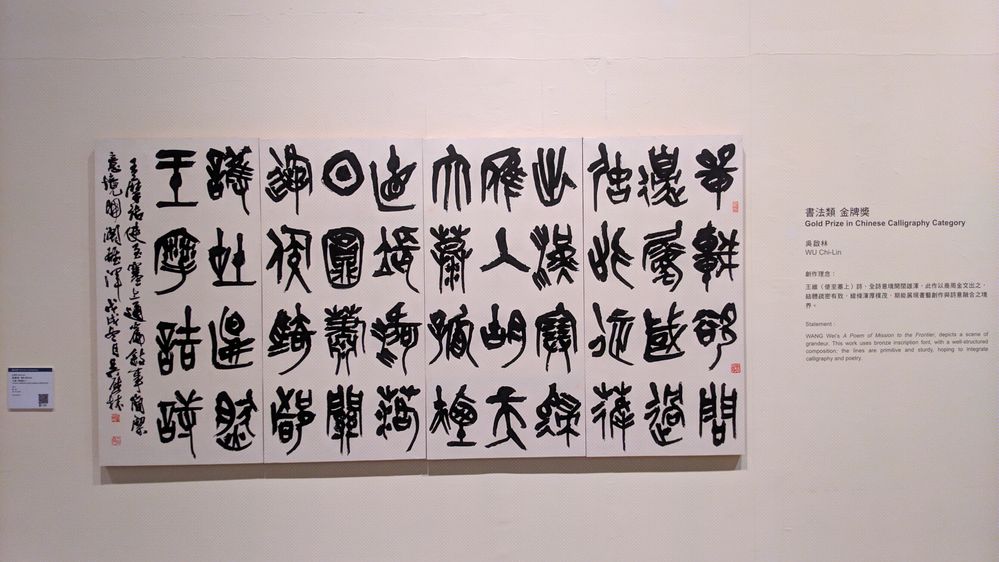 單車欲問
邊屬國過
居延征蓬
出漢塞歸
雁入胡天
大漠孤煙
直長河落
日圓蕭關
逢候騎都
護在燕然
王摩詰詩
王摩詰使至塞上通篇敘事簡潔
意境開闊雄渾 戊戌冬月吳啟林
書法類 金牌獎
Gold Prize in Chinese Calligraphy Category
吳啟林
WU Chi-Lin
創作理念：
王維〈使至塞上〉詩，全詩意境開闊雄渾，此作以商周金文出之，
結體疏密有致，線條渾厚樸茂，期能展現書藝創作與詩意融合之境
界。
Statement :
WANG Wei's A Poem of Mission to the Frontier, depicts a scene of
grandeur. This work uses bronze inscription font, with a well-structured
composition; the lines are primitive and sturdy, hoping to integrate
calligraphy and poetry.